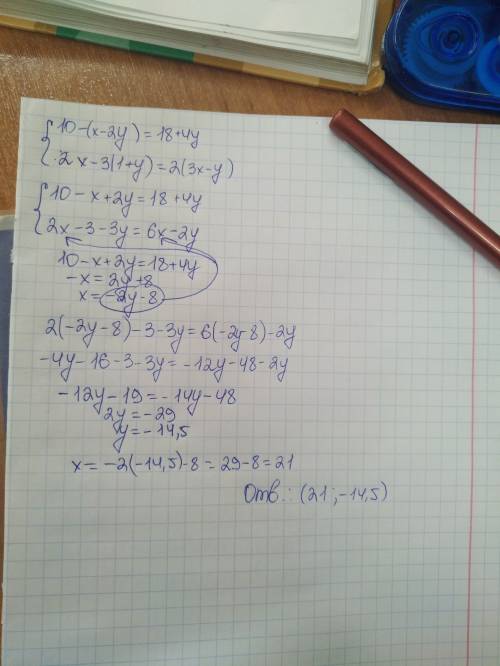 10-(x-2y)=18+4y
2x-3(1+y)=2(3x-y)
10-x+2y=18+4y
2x-3-3y=6x-2y
10-x+2y=18+4y
-x=2y+8
x=-2y-8
2(-2y-8)-3-3y=6(-2y-8)-2y
-4y-16-3-3y=-12y-48-2y
-12y-19=-14y-48
2y=-29
y=-14,5
x=-2(-14,5)-8=29-8=21
Отв.: (21;-14,5)